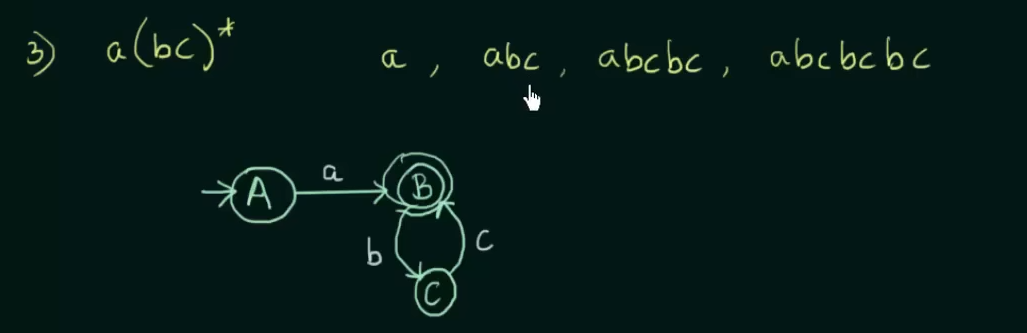 3) a(bc)* a , abc , abcbc , abcbcbc
a
A B
b c
C